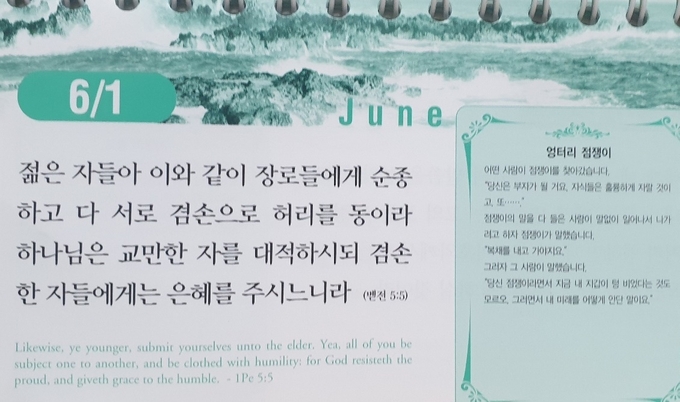 6/1
June
젊은 자들아 이와 같이 장로들에게 순종
하고 다 서로 겸손으로 허리를 동이라
하나님은 교만한 자를 대적하시되 겸손
한 자들에게는 은혜를 주시느니라 (벧전 5:5)
Likewise, ye younger, submit yourselves unto the elder. Yea, all of you be
subject one to another, and be clothed with humility: for God resisteth the
proud, and giveth grace to the humble. - 1Pe 5:5
엉터리 점쟁이
어떤 사람이 점쟁이를 찾아갔습니다.
"당신은 부자가 될 거요, 자식들은 훌륭하게 자랄 것이
고, 또……."
점쟁이의 말을 다 들은 사람이 말없이 일어나서 나가
려고 하자 점쟁이가 말했습니다.
"복채를 내고 가야지요."
그러자 그 사람이 말했습니다.
"당신 점쟁이라면서 지금 내 지갑이 텅 비었다는 것도
모르오, 그러면서 내 미래를 어떻게 안단 말이요."